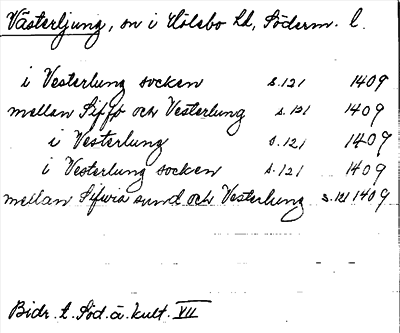 Västerljung, sn i Hölebo hd, Söderm. l.
i Vesterlung socken s. 121 1409
mellan Siffo och Vesterlung s. 121 1409
i Vesterlung s. 121 1409
i Vesterlung socken s. 121 1409
mellan Sifwia sund och Vesterlung s. 121 1409
Bidr. t. Söd. ä. kult. VII